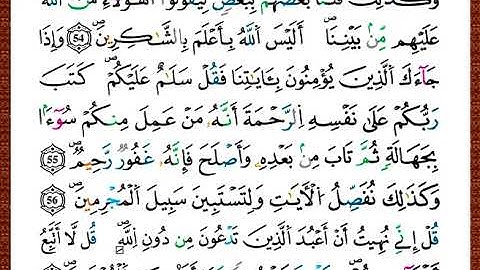 وَكَذَٰلِكَ فَتَنَّا بَعْضَهُم بِبَعْضٍ لِّيَقُولُوٓا۟ أَهَٰٓؤُلَآءِ مَنَّ ٱللَّهُ
عَلَيْهِم مِّنۢ بَيْنِنَآ أَلَيْسَ ٱللَّهُ بِأَعْلَمَ بِٱلشَّٰكِرِينَ 54 وَإِذَا
جَآءَكَ ٱلَّذِينَ يُؤْمِنُونَ بِـَٔايَٰتِنَا فَقُلْ سَلَٰمٌ عَلَيْكُمْ كَتَبَ
رَبُّكُمْ عَلَىٰ نَفْسِهِ ٱلرَّحْمَةَ أَنَّهُۥ مَنْ عَمِلَ مِنكُمْ سُوٓءًۢا
بِجَهَٰلَةٍ ثُمَّ تَابَ مِنۢ بَعْدِهِۦ وَأَصْلَحَ فَإِنَّهُۥ غَفُورٌ رَّحِيمٌ 55
وَكَذَٰلِكَ نُفَصِّلُ ٱلْأٓيَٰتِ وَلِتَسْتَبِينَ سَبِيلَ ٱلْمُجْرِمِينَ 56
قُلْ إِنِّى نُهِيتُ أَنْ أَعْبُدَ ٱلَّذِينَ تَدْعُونَ مِن دُونِ ٱللَّهِ قُل لَّآ أَتَّبِعُ